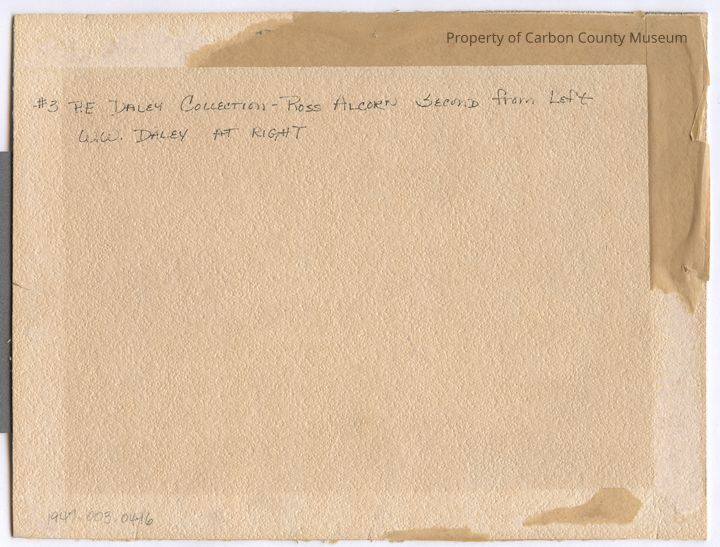 Property of Carbon County Museum
#3 P.E DALEY COLLECTION - ROSS ALCORN SECOND from Left
W.W. DALEY AT RIGHT
1947.003.0416